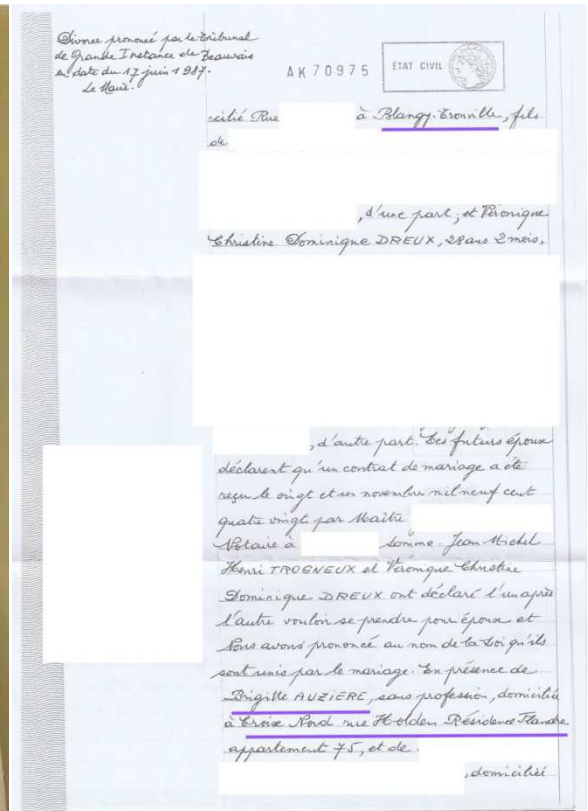 Divorce prononcé par le tribunal
de Grande Instance de Beauvais
en date du 17 juin 1987.
Le Maire.
AK70975
ÉTAT CIVIL
-cilié Rue à Blangy-Tronville, fils
de
, d'une part ; et Véronique
Christine Dominique DREUX, 28 ans 2 mois,
, d'autre part. Les futurs époux
déclarent qu'un contrat de mariage a été
reçu le vingt et un novembre mil neuf cent
quatre vingt par Maître
Notaire à Somme. Jean-Michel
Henri TROGNEUX et Véronique Christine
Dominique DREUX ont déclaré l'un après
l'autre vouloir se prendre pour époux et
Nous avons prononcé au nom de la Loi qu'ils
sont unis par le mariage. En présence de
Brigitte AUZIERE, sans profession, domiciliée
à Croix Nord rue Holden Résidence Flandre
appartement 75, et de
, domicilié